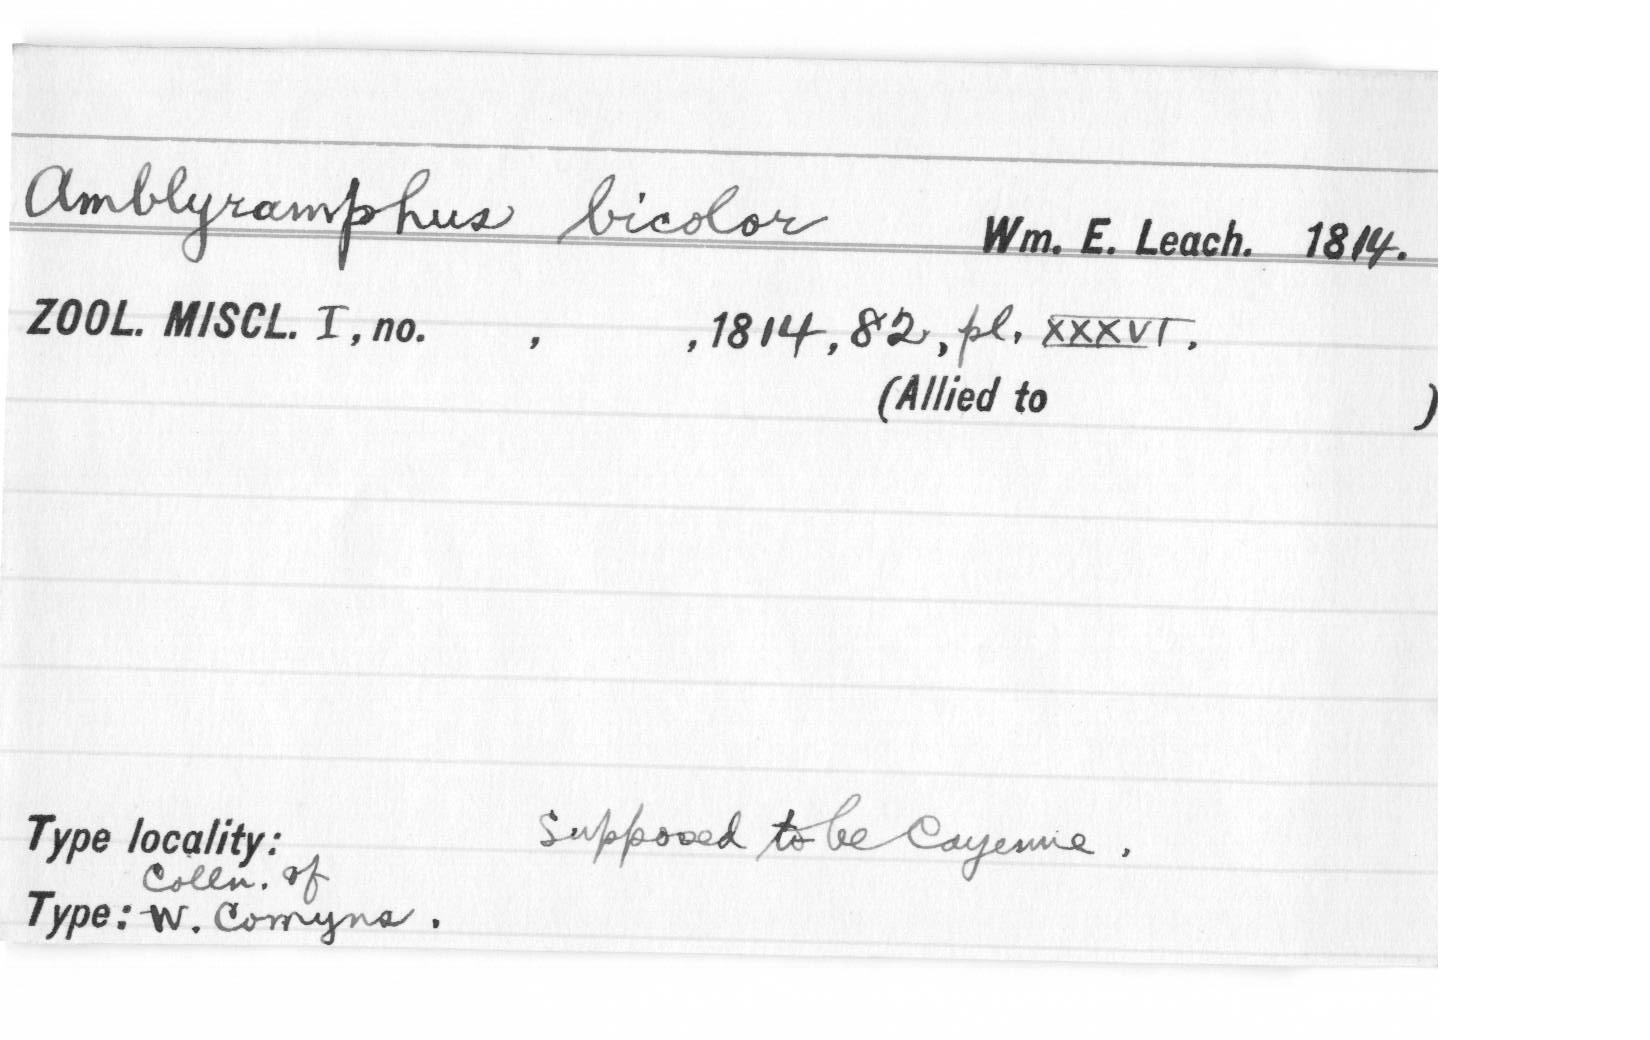 Amblyramphus bicolor Wm. E. Leach. 1814.
ZOOL. MISCL. I, no. , , 1814, 82, pl. XXXVI.
(Allied to )
Type locality: Supposed to be Cayenne.
Colln. of
Type: W. Comyns.